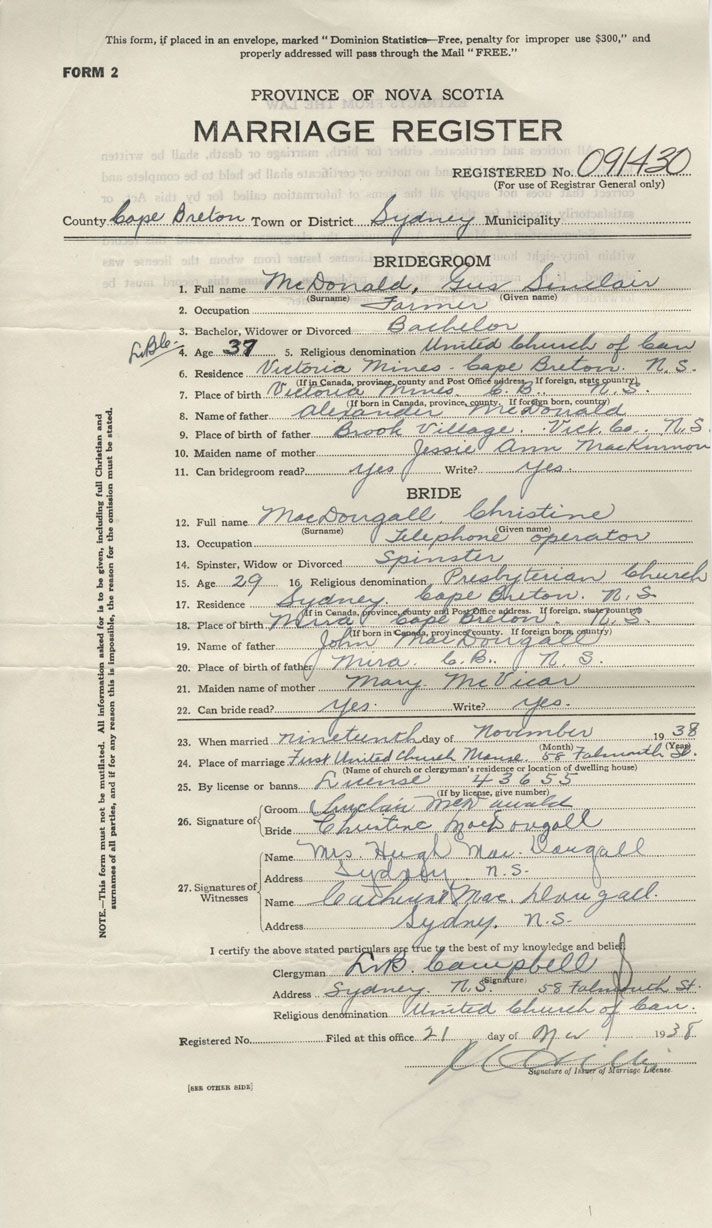 This form, if placed in an envelope, marked "Dominion Statistics—Free, penalty for improper use $300," and
properly addressed will pass through the Mail "FREE."
FORM 2
PROVINCE OF NOVA SCOTIA
MARRIAGE REGISTER
REGISTERED No. 091430
(For use of Registrar General only)
County Cape Breton Town or District Sydney Municipality
BRIDEGROOM
1. Full name McDonald, Gus Sinclair
(Surname) (Given name)
2. Occupation Farmer
3. Bachelor, Widower or Divorced Bachelor
4. Age 37 5. Religious denomination United Church of Can
6. Residence Victoria Mines - Cape Breton. N.S.
(If in Canada, province, county and Post Office address. If foreign, state country)
7. Place of birth Victoria Mines C.B. N.S.
(If born in Canada, province, county. If foreign born, country)
8. Name of father Alexander McDonald
9. Place of birth of father Brook Village. Vict. Co. N.S.
10. Maiden name of mother Jessie Ann MacKinnon
11. Can bridegroom read? yes Write? yes.
BRIDE
12. Full name MacDougall, Christine
(Surname) (Given name)
13. Occupation Telephone operator
14. Spinster, Widow or Divorced Spinster
15. Age 29 16. Religious denomination Presbyterian Church
17. Residence Sydney. Cape Breton. N.S.
(If in Canada, province, county and Post Office address. If foreign, state country)
18. Place of birth Mira Cape Breton. N.S.
(If born in Canada, province, county. If foreign born, country)
19. Name of father John MacDougall
20. Place of birth of father Mira. C.B. N.S.
21. Maiden name of mother Mary McVicar
22. Can bride read? yes. Write? yes.
23. When married nineteenth day of November 1938
(Month) (Year)
24. Place of marriage First United Church Manse. 58 Falmouth St.
(Name of church or clergyman's residence or location of dwelling house)
25. By license or banns License 43655
(If by license, give number)
26. Signature of Groom Sinclair McDonald
Bride Christine MacDougall
27. Signatures of Witnesses
Name Mrs. Hugh MacDougall
Address Sydney N.S.
Name Catherine MacDougall.
Address Sydney. N.S.
I certify the above stated particulars are true to the best of my knowledge and belief.
Clergyman L.B. Campbell
(Signature)
Address Sydney. N.S. 58 Falmouth St.
Religious denomination United Church of Can.
Registered No. Filed at this office 21 day of Nov 1938
Signature of Issuer of Marriage License.
[SEE OTHER SIDE]
NOTE.—This form must not be mutilated. All information asked for is to be given, including full Christian and
surnames of all parties, and if for any reason this is impossible, the reason for the omission must be stated.